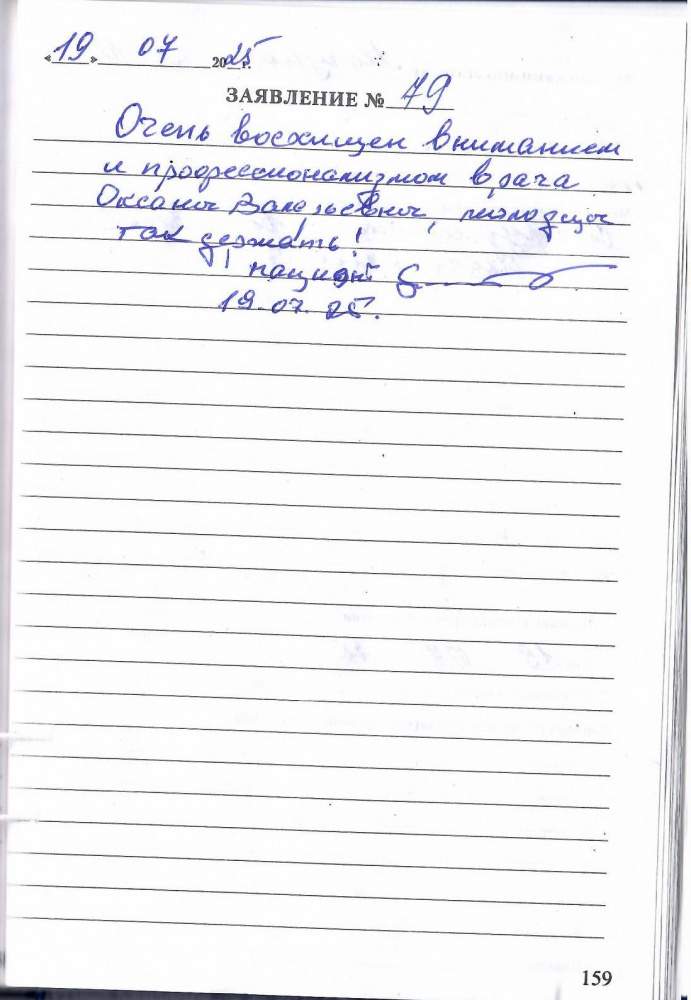 «19» 07 2025 г.
ЗАЯВЛЕНИЕ № 79
Очень восхищен вниманием
и профессионализмом врача
Оксаны Валерьевны, молодцы
так держать!
пациент
19.07.25.
159